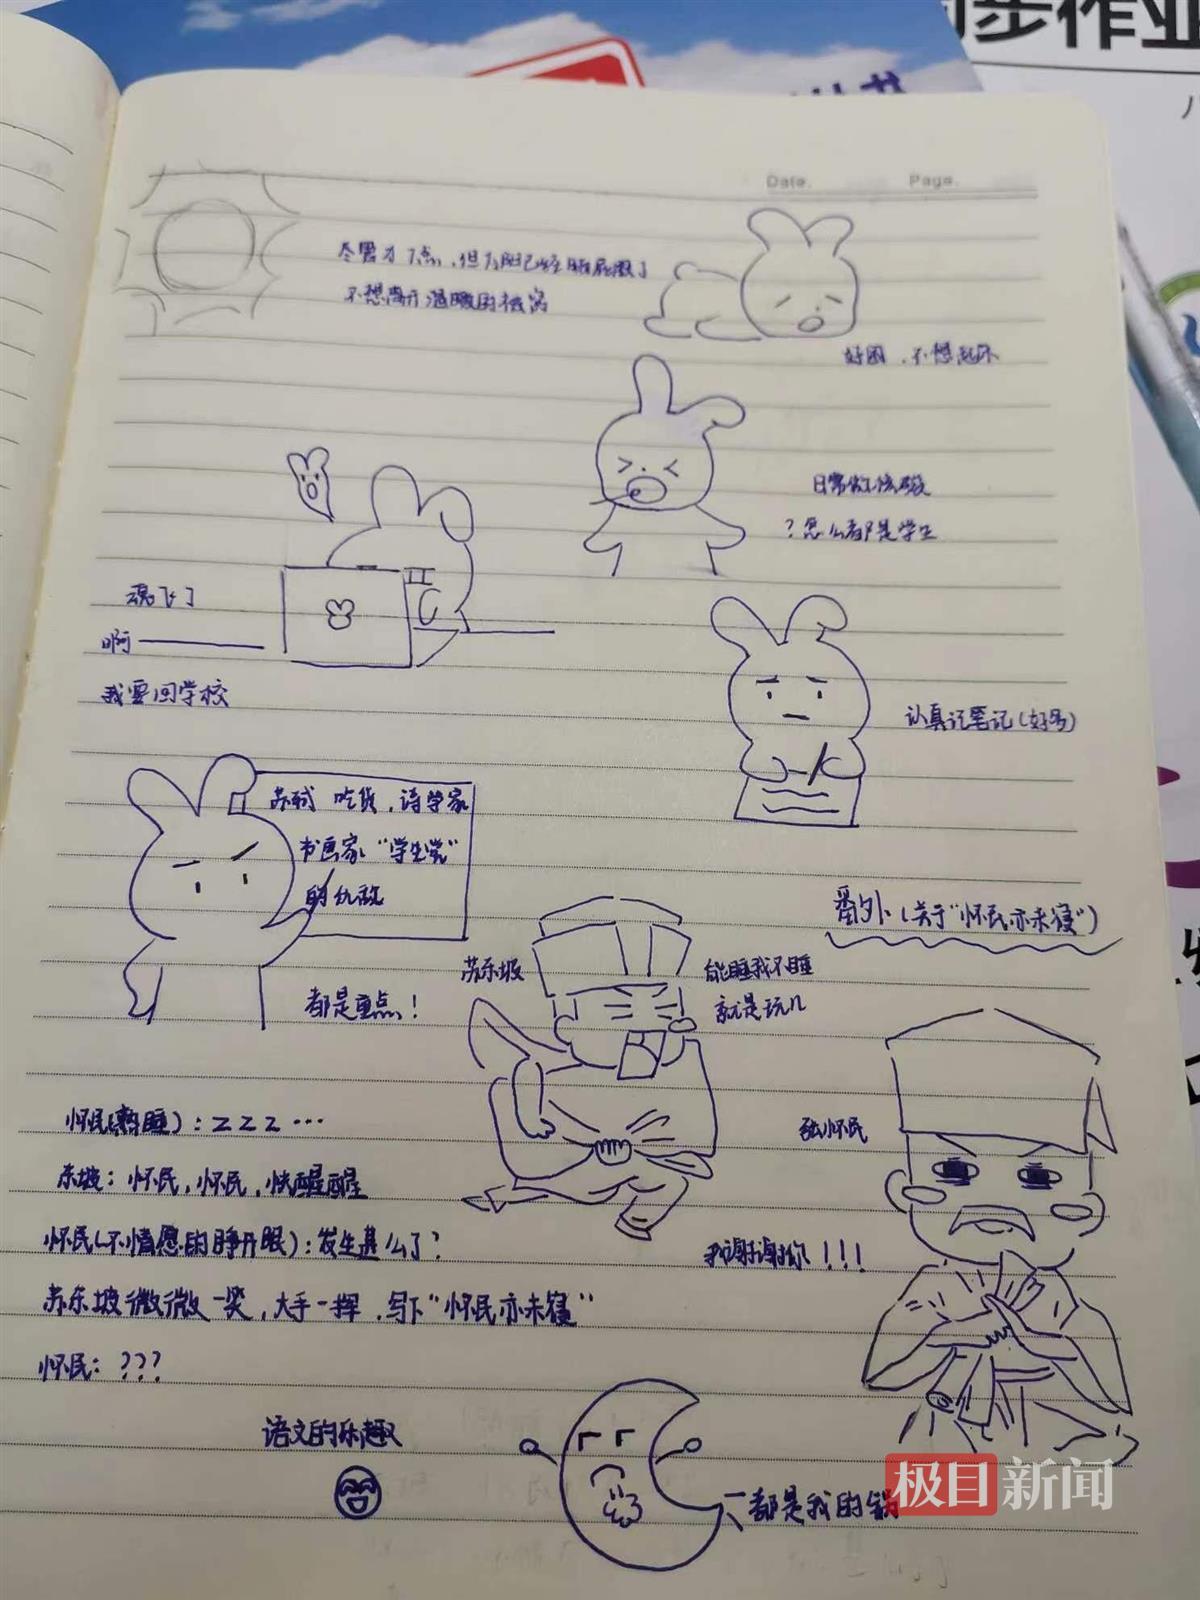 步作业
八
Date.
Page.
尽管才7点，但太阳已经晒屁股了
不想离开温暖的被窝
好困，不想起床
日常做核酸
？怎么都是学生
魂飞了
啊——
我要回学校
认真记笔记（好多）
苏轼 吃货，诗学家
书画家"学生党"
的仇敌
都是重点！
番外（关于"怀民亦未寝"）
苏东坡
能睡我不睡
就是玩儿
张怀民
我谢谢你！！！
怀民（熟睡）：ZZZ…
东坡：怀民，怀民，快醒醒
怀民（不情愿的睁开眼）：发生甚么了？
苏东坡微微一笑，大手一挥，写下"怀民亦未寝"
怀民：？？？
语文的乐趣
都是我的锅
极目新闻